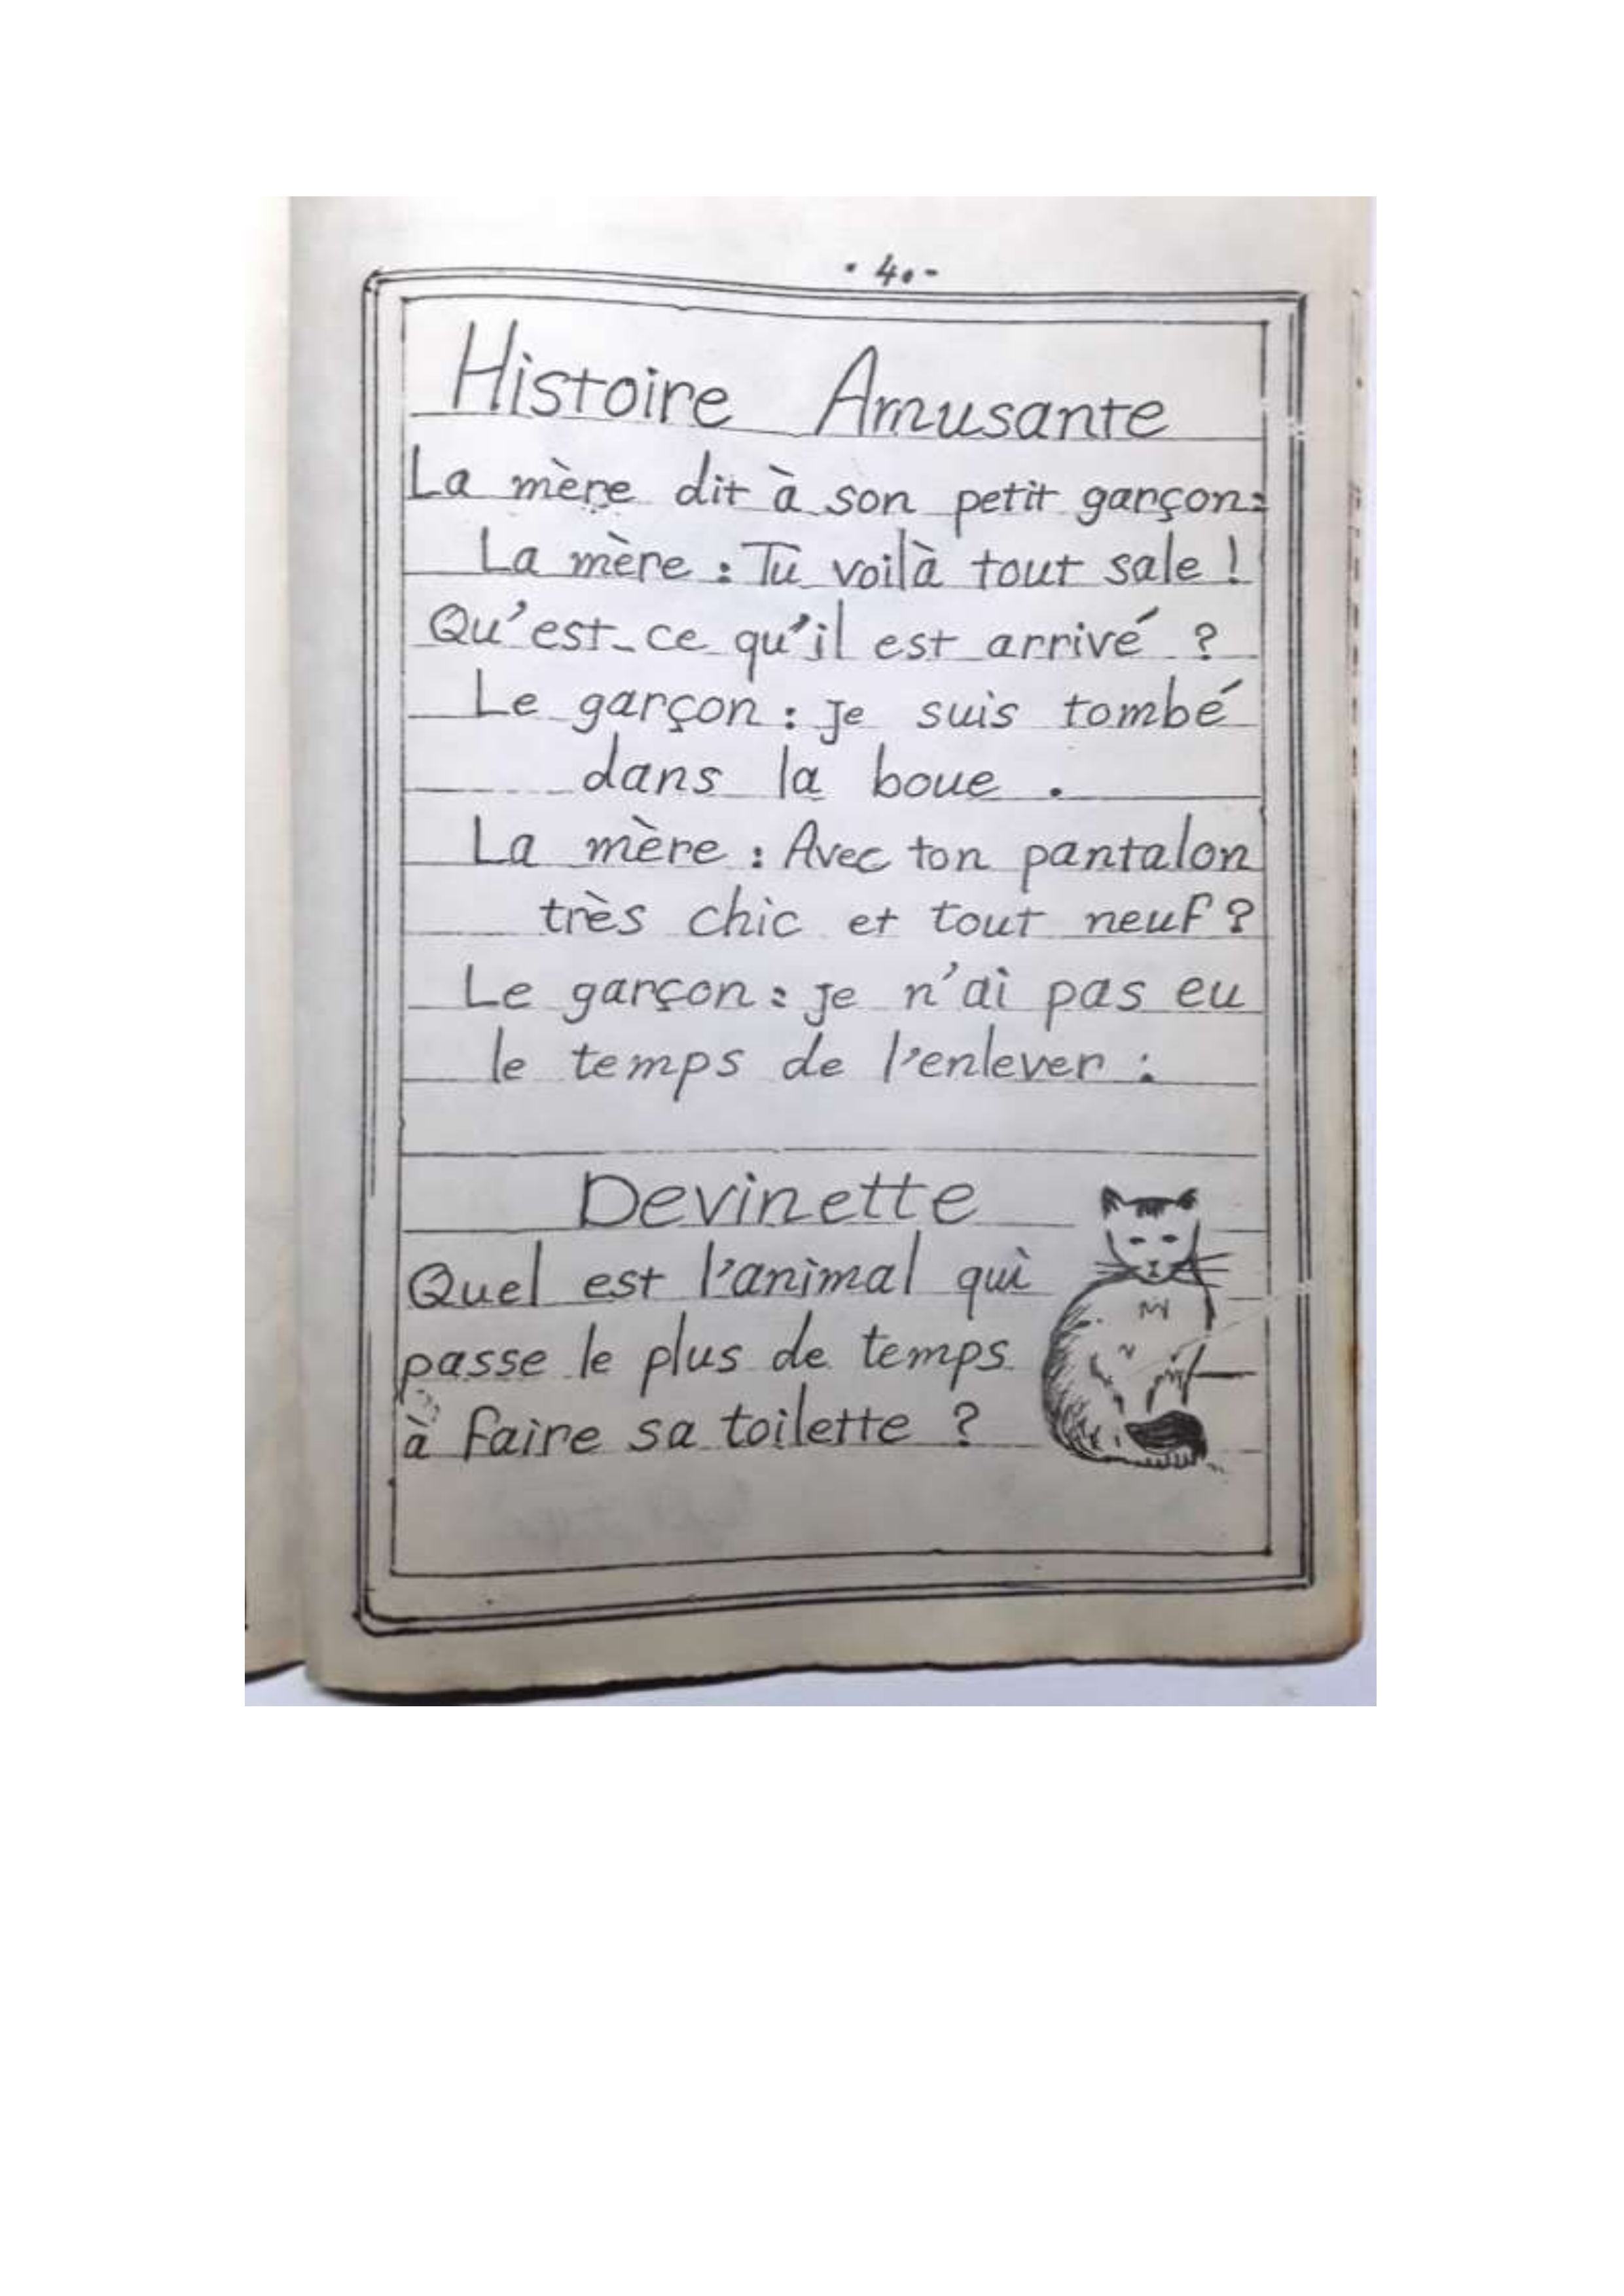 - 40 -
Histoire Amusante
La mère dit à son petit garçon:
La mère : Tu voilà tout sale !
Qu'est-ce qu'il est arrivé ?
Le garçon : je suis tombé
dans la boue .
La mère : Avec ton pantalon
très chic et tout neuf ?
Le garçon : je n'ai pas eu
le temps de l'enlever :
Devinette
Quel est l'animal qui
passe le plus de temps
à faire sa toilette ?